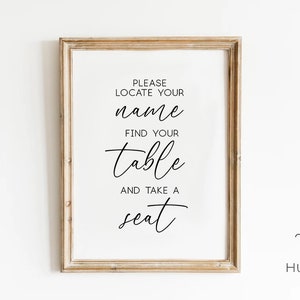 PLEASE
LOCATE YOUR
name
FIND YOUR
table
AND TAKE A
seat